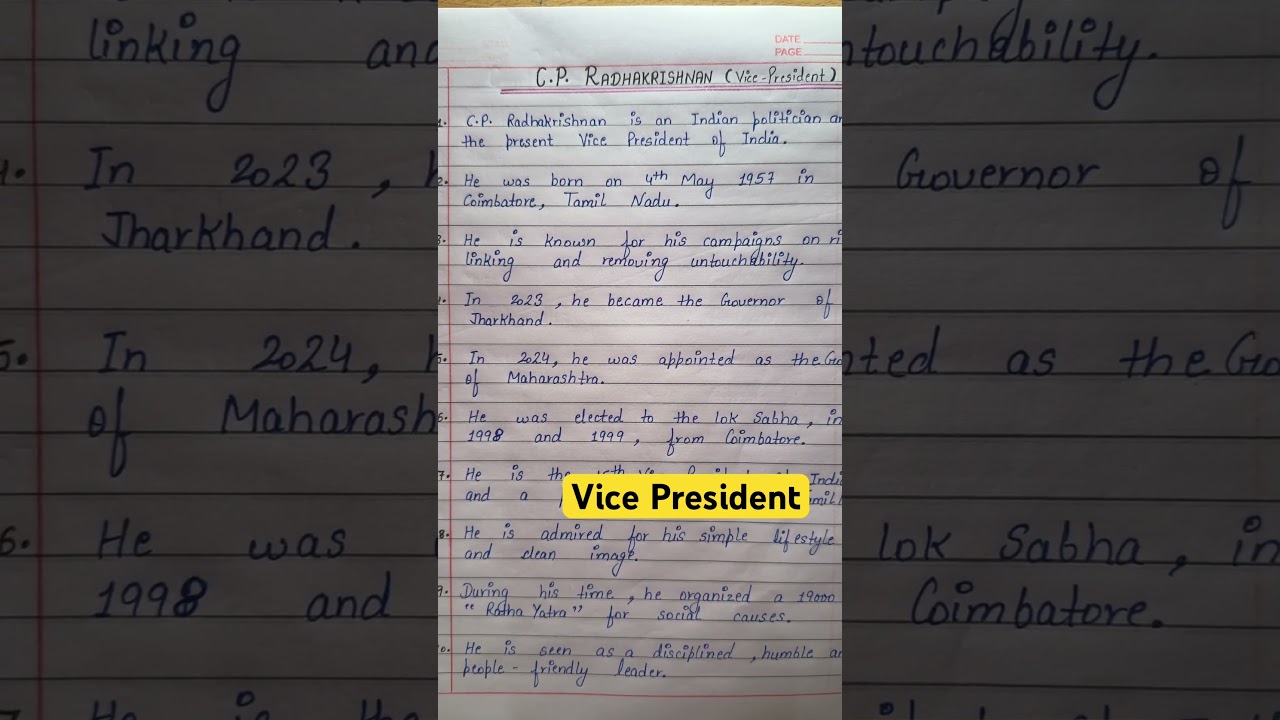 DATE
PAGE
C.P. RADHAKRISHNAN (Vice-President)
1. C.P. Radhakrishnan is an Indian politician an
the present Vice President of India.
2. He was born on 4th May 1957 in
Coimbatore, Tamil Nadu.
3. He is known for his campaigns on ri
linking and removing untouchability.
4. In 2023, he became the Governor of
Jharkhand.
5. In 2024, he was appointed as the Go
of Maharashtra.
6. He was elected to the lok Sabha, in
1998 and 1999, from Coimbatore.
7. He is the 15th Vice President of Indi
and a
Vice President
8. He is admired for his simple lifestyle
and clean image.
9. During his time, he organized a 19000
"Ratha Yatra" for social causes.
10. He is seen as a disciplined, humble an
people-friendly leader.
linking and
1. In 2023, h
Jharkhand.
5. In 2024, h
of Maharash
6. He was
1998 and
7. He is the
ntouchability.
Governor of
nted as the Go
lok Sabha, in
Coimbatore.